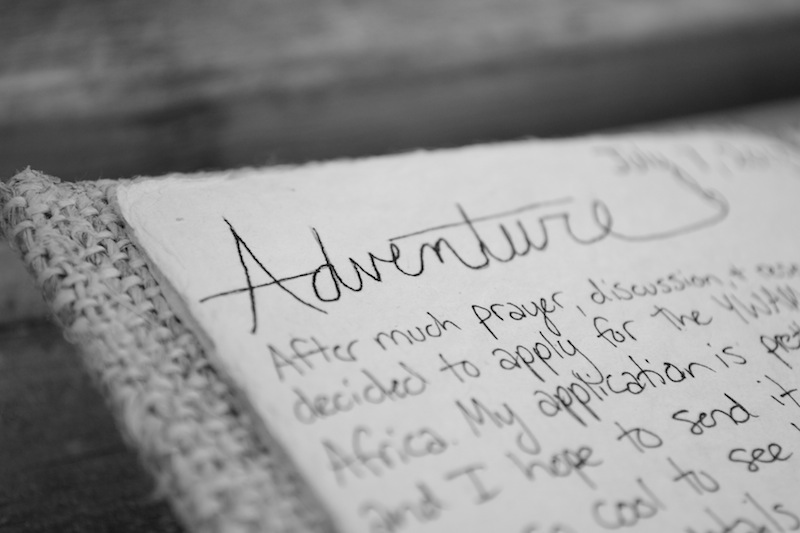 July
Adventure
After much prayer, discussion, +
decided to apply for the YWAM
Africa. My application is
and I hope to send it
so cool to see